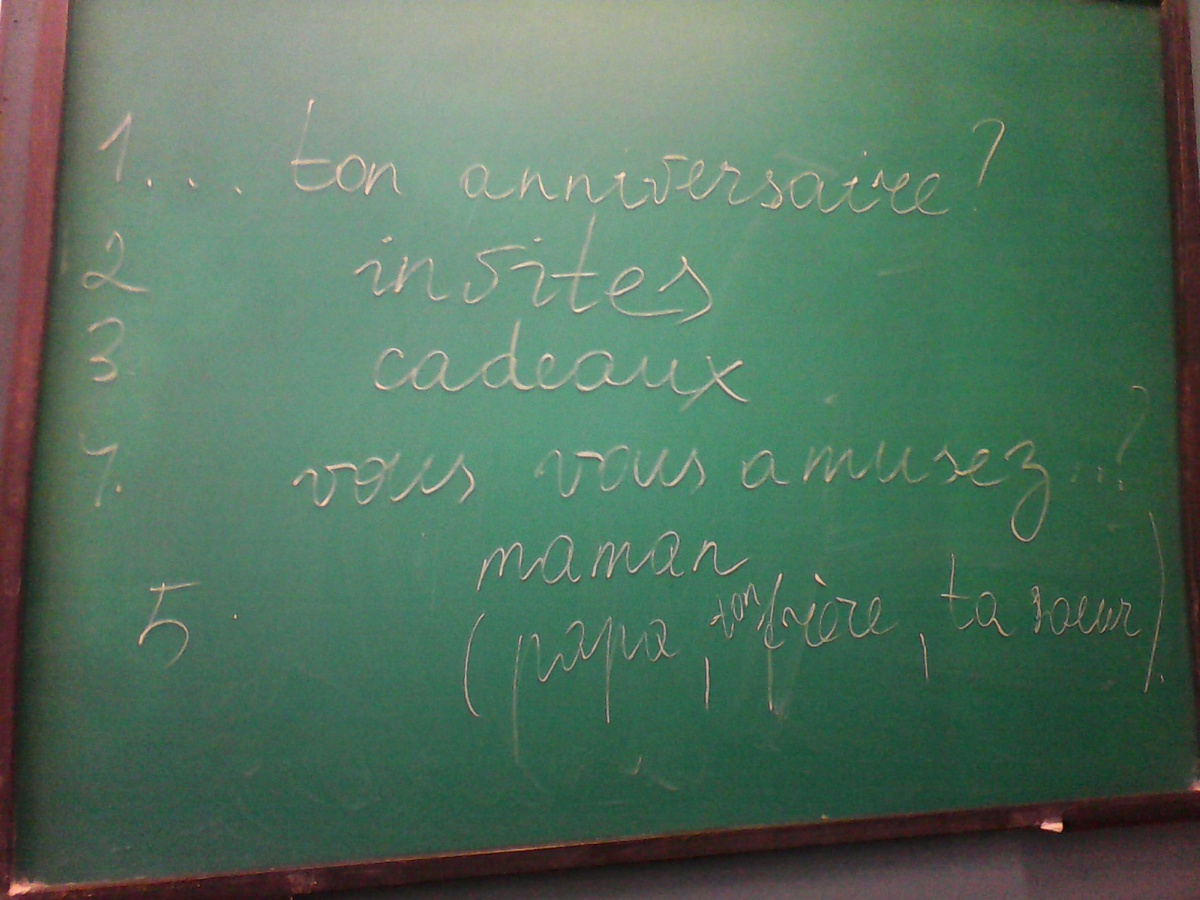 1... ton anniversaire?
2 invites
3. cadeaux
4. vous vous amusez...?
maman
5. (papa, ton frère, ta soeur).